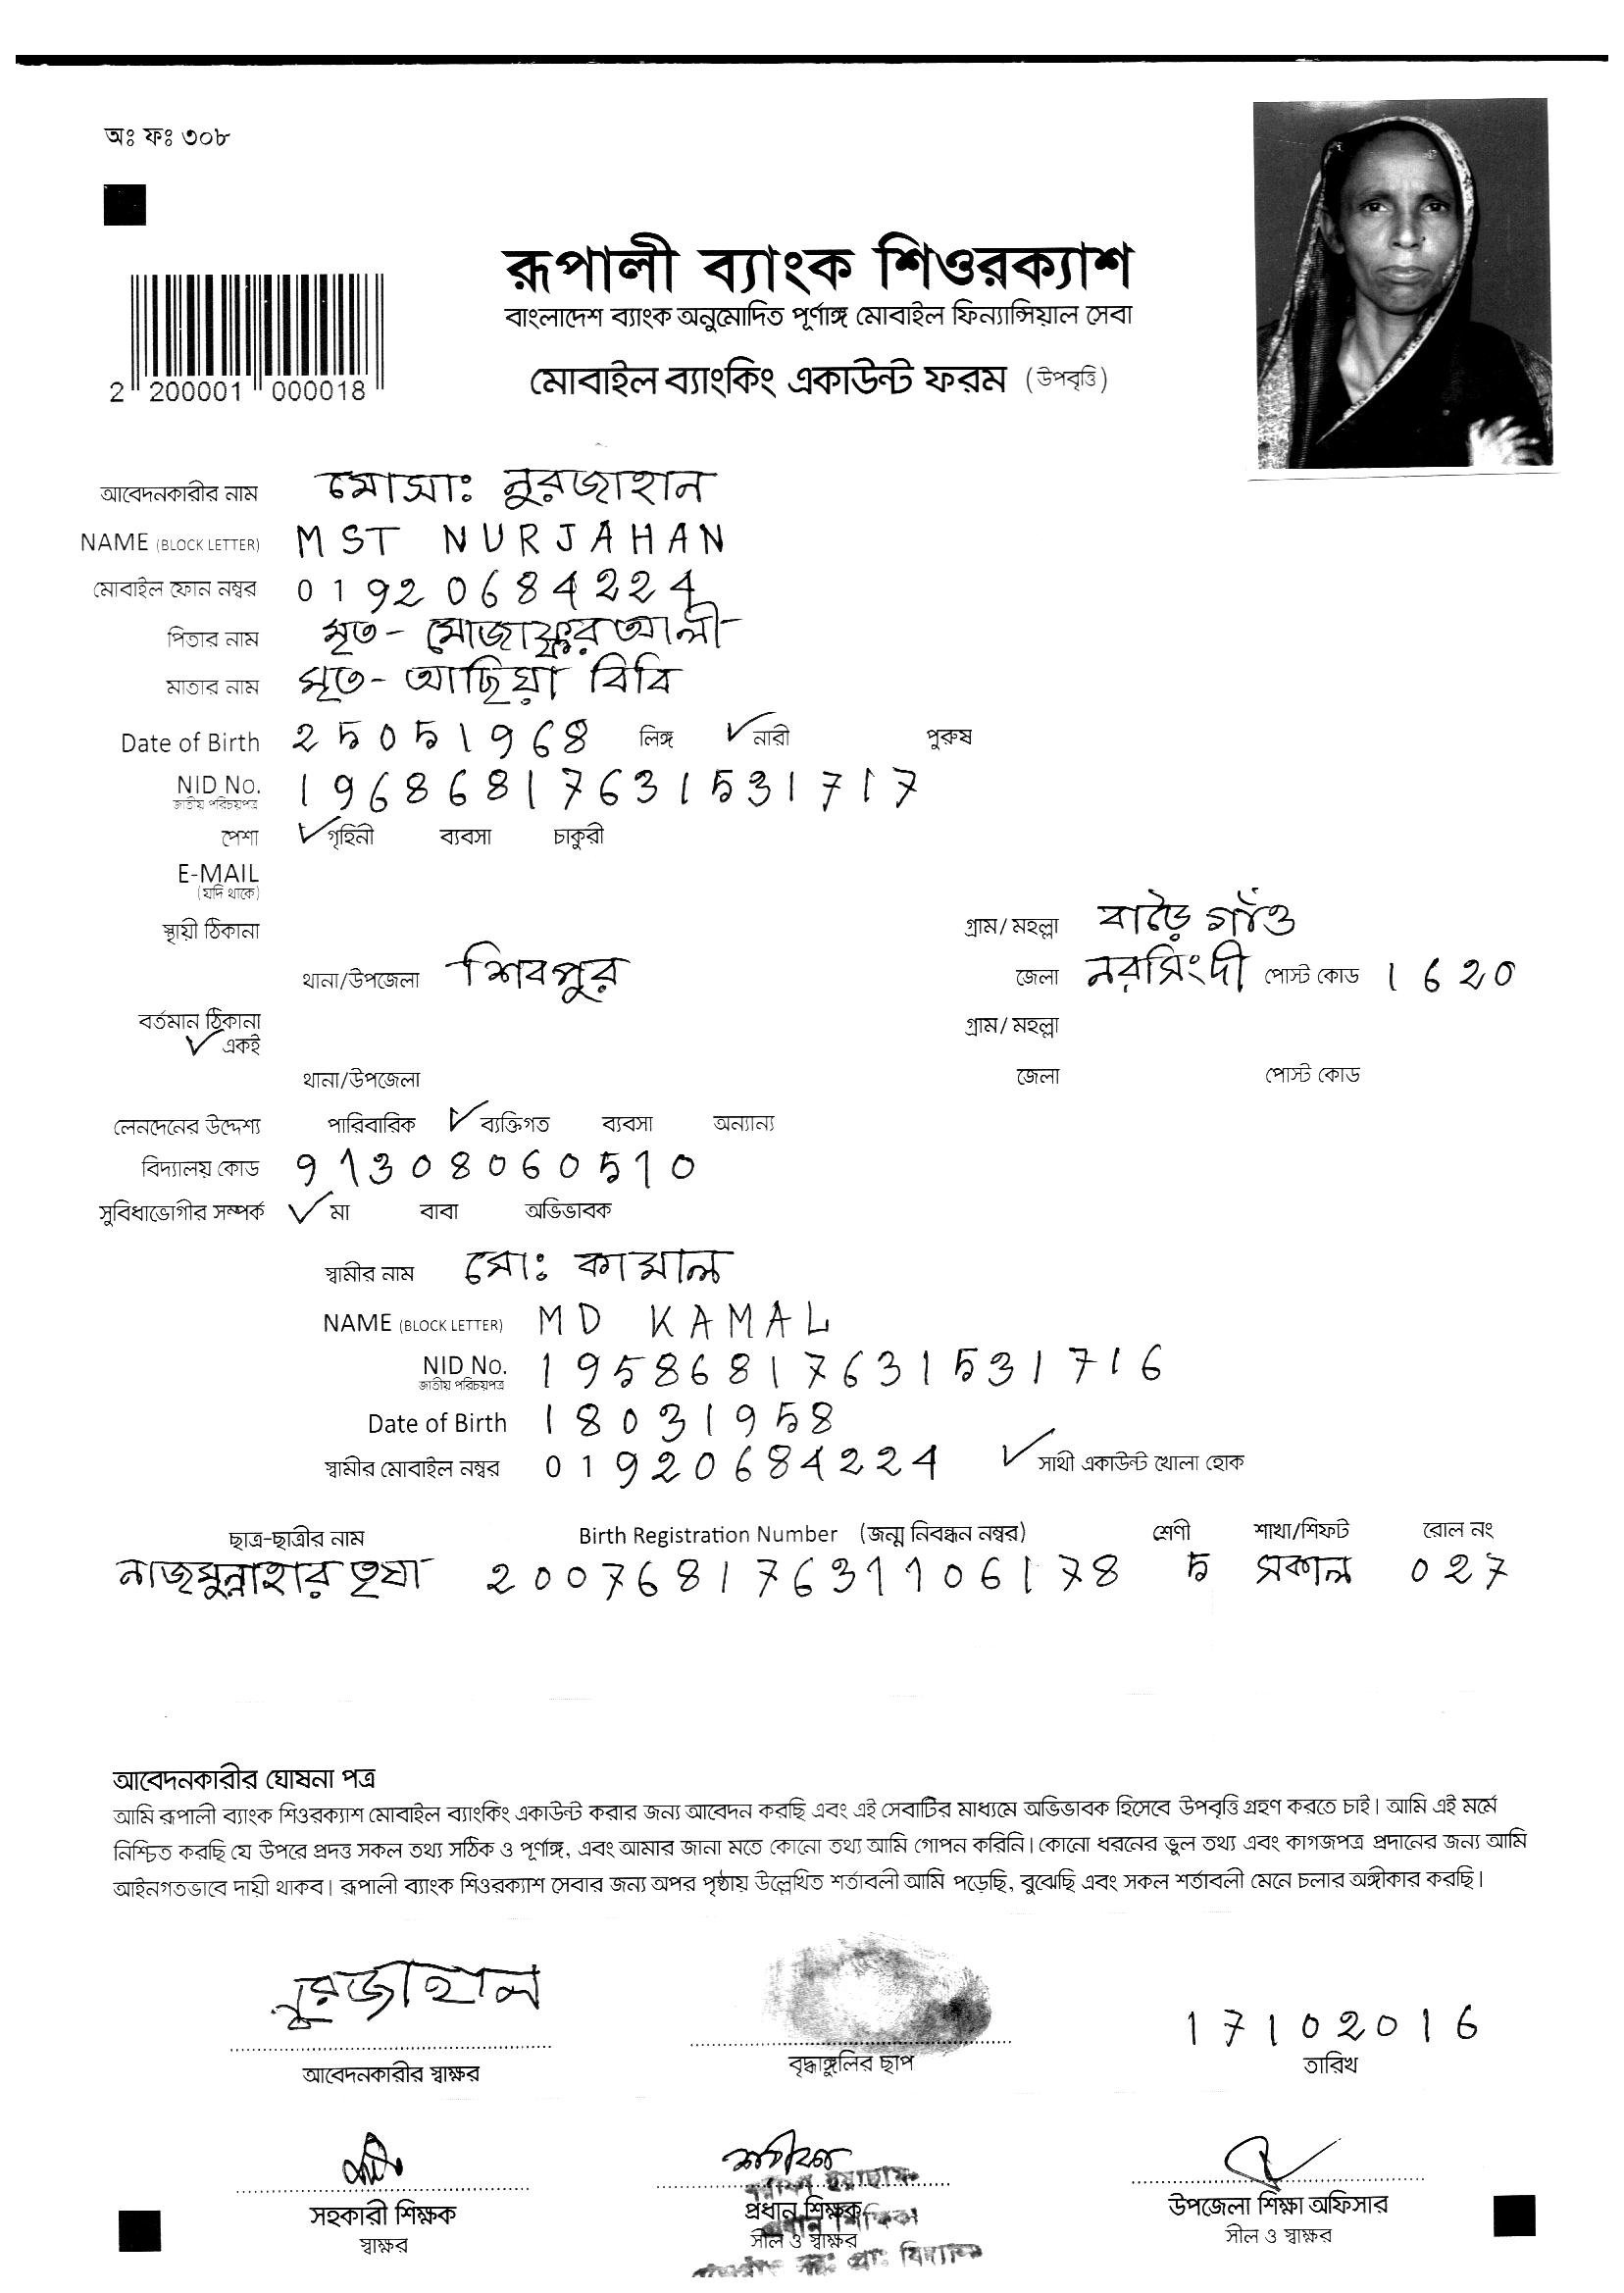 অঃ ফঃ ৩০৮
রূপালী ব্যাংক শিওরক্যাশ
বাংলাদেশ ব্যাংক অনুমোদিত পূর্ণাঙ্গ মোবাইল ফিন্যান্সিয়াল সেবা
মোবাইল ব্যাংকিং একাউন্ট ফরম (উপবৃত্তি)
2 200001 000018
আবেদনকারীর নাম মোসাঃ নুরজাহান
NAME (BLOCK LETTER) MST NURJAHAN
মোবাইল ফোন নম্বর 01920684224
পিতার নাম মৃত- মোজাফ্ফর আলী
মাতার নাম মৃত- আছিয়া বিবি
Date of Birth 25051968 লিঙ্গ ✓ নারী পুরুষ
NID No. 19686817631531717
জাতীয় পরিচয়পত্র
পেশা ✓ গৃহিনী ব্যবসা চাকুরী
E-MAIL
(যদি থাকে)
স্থায়ী ঠিকানা গ্রাম/ মহল্লা বাড়ৈ গাঁও
থানা/উপজেলা শিবপুর জেলা নরসিংদী পোস্ট কোড 1620
বর্তমান ঠিকানা গ্রাম/ মহল্লা
✓ একই
থানা/উপজেলা জেলা পোস্ট কোড
লেনদেনের উদ্দেশ্য পারিবারিক ✓ ব্যক্তিগত ব্যবসা অন্যান্য
বিদ্যালয় কোড 91308060510
সুবিধাভোগীর সম্পর্ক ✓ মা বাবা অভিভাবক
স্বামীর নাম মোঃ কামাল
NAME (BLOCK LETTER) MD KAMAL
NID No. 19586817631531716
জাতীয় পরিচয়পত্র
Date of Birth 18031958
স্বামীর মোবাইল নম্বর 01920684224 ✓ সাথী একাউন্ট খোলা হোক
ছাত্র-ছাত্রীর নাম Birth Registration Number (জন্ম নিবন্ধন নম্বর) শ্রেণী শাখা/শিফট রোল নং
নাজমুন্নাহার তৃষা 20076817631106178 5 সকাল 027
আবেদনকারীর ঘোষনা পত্র
আমি রূপালী ব্যাংক শিওরক্যাশ মোবাইল ব্যাংকিং একাউন্ট করার জন্য আবেদন করছি এবং এই সেবাটির মাধ্যমে অভিভাবক হিসেবে উপবৃত্তি গ্রহণ করতে চাই। আমি এই মর্মে
নিশ্চিত করছি যে উপরে প্রদত্ত সকল তথ্য সঠিক ও পূর্ণাঙ্গ, এবং আমার জানা মতে কোনো তথ্য আমি গোপন করিনি। কোনো ধরনের ভুল তথ্য এবং কাগজপত্র প্রদানের জন্য আমি
আইনগতভাবে দায়ী থাকব। রূপালী ব্যাংক শিওরক্যাশ সেবার জন্য অপর পৃষ্ঠায় উল্লেখিত শর্তাবলী আমি পড়েছি, বুঝেছি এবং সকল শর্তাবলী মেনে চলার অঙ্গীকার করছি।
নুরজাহান 17102016
আবেদনকারীর স্বাক্ষর বৃদ্ধাঙ্গুলির ছাপ তারিখ
সহকারী শিক্ষক প্রধান শিক্ষক উপজেলা শিক্ষা অফিসার
স্বাক্ষর সীল ও স্বাক্ষর সীল ও স্বাক্ষর